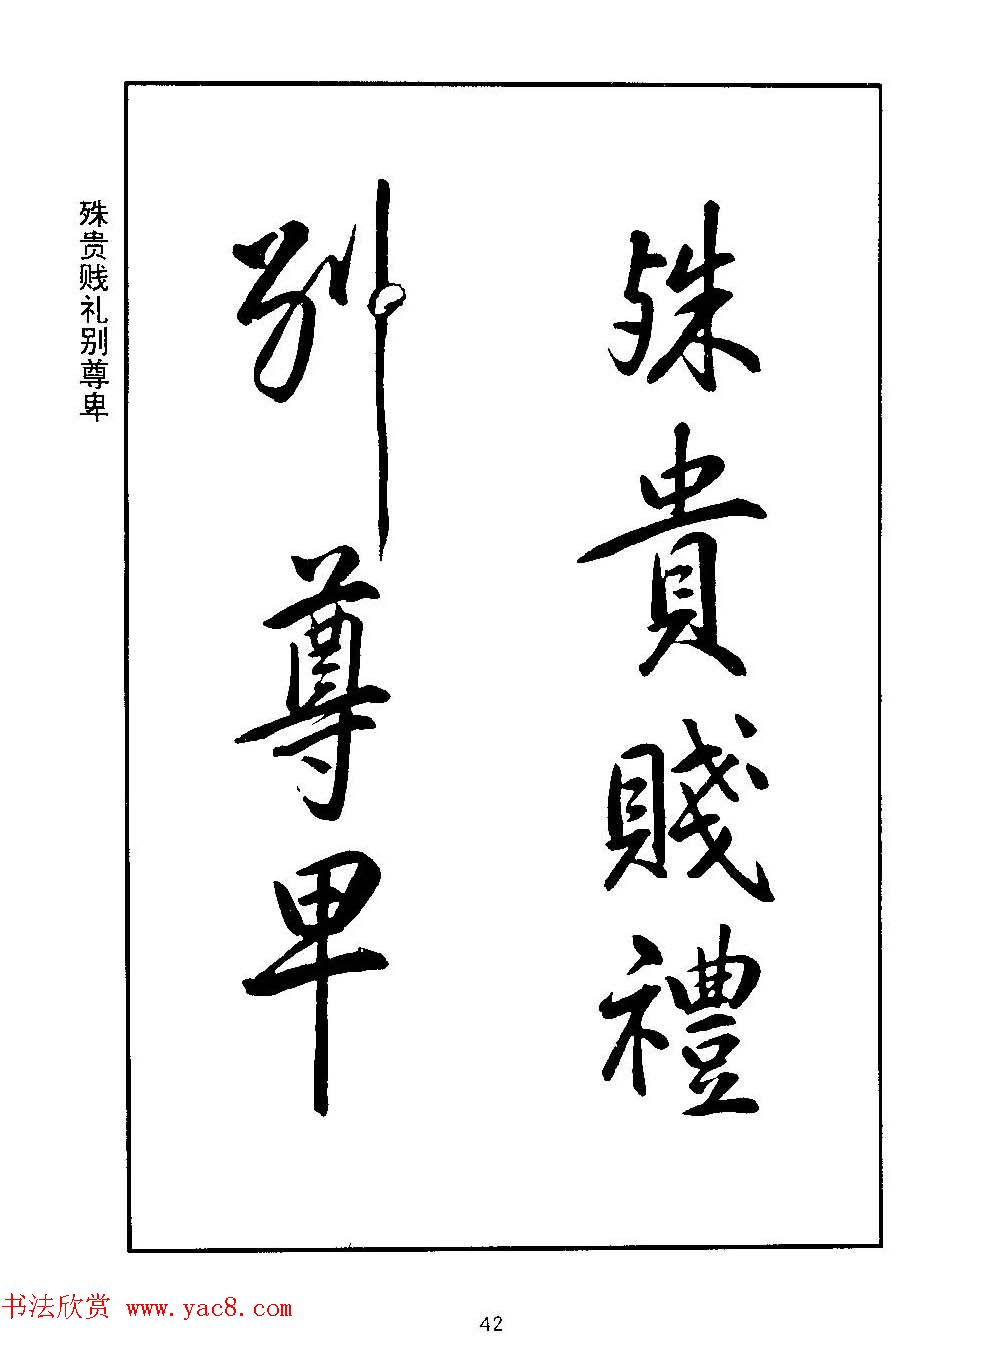 殊貴賤禮
别尊卑
殊贵贱礼别尊卑
书法欣赏 www.yac8.com
42